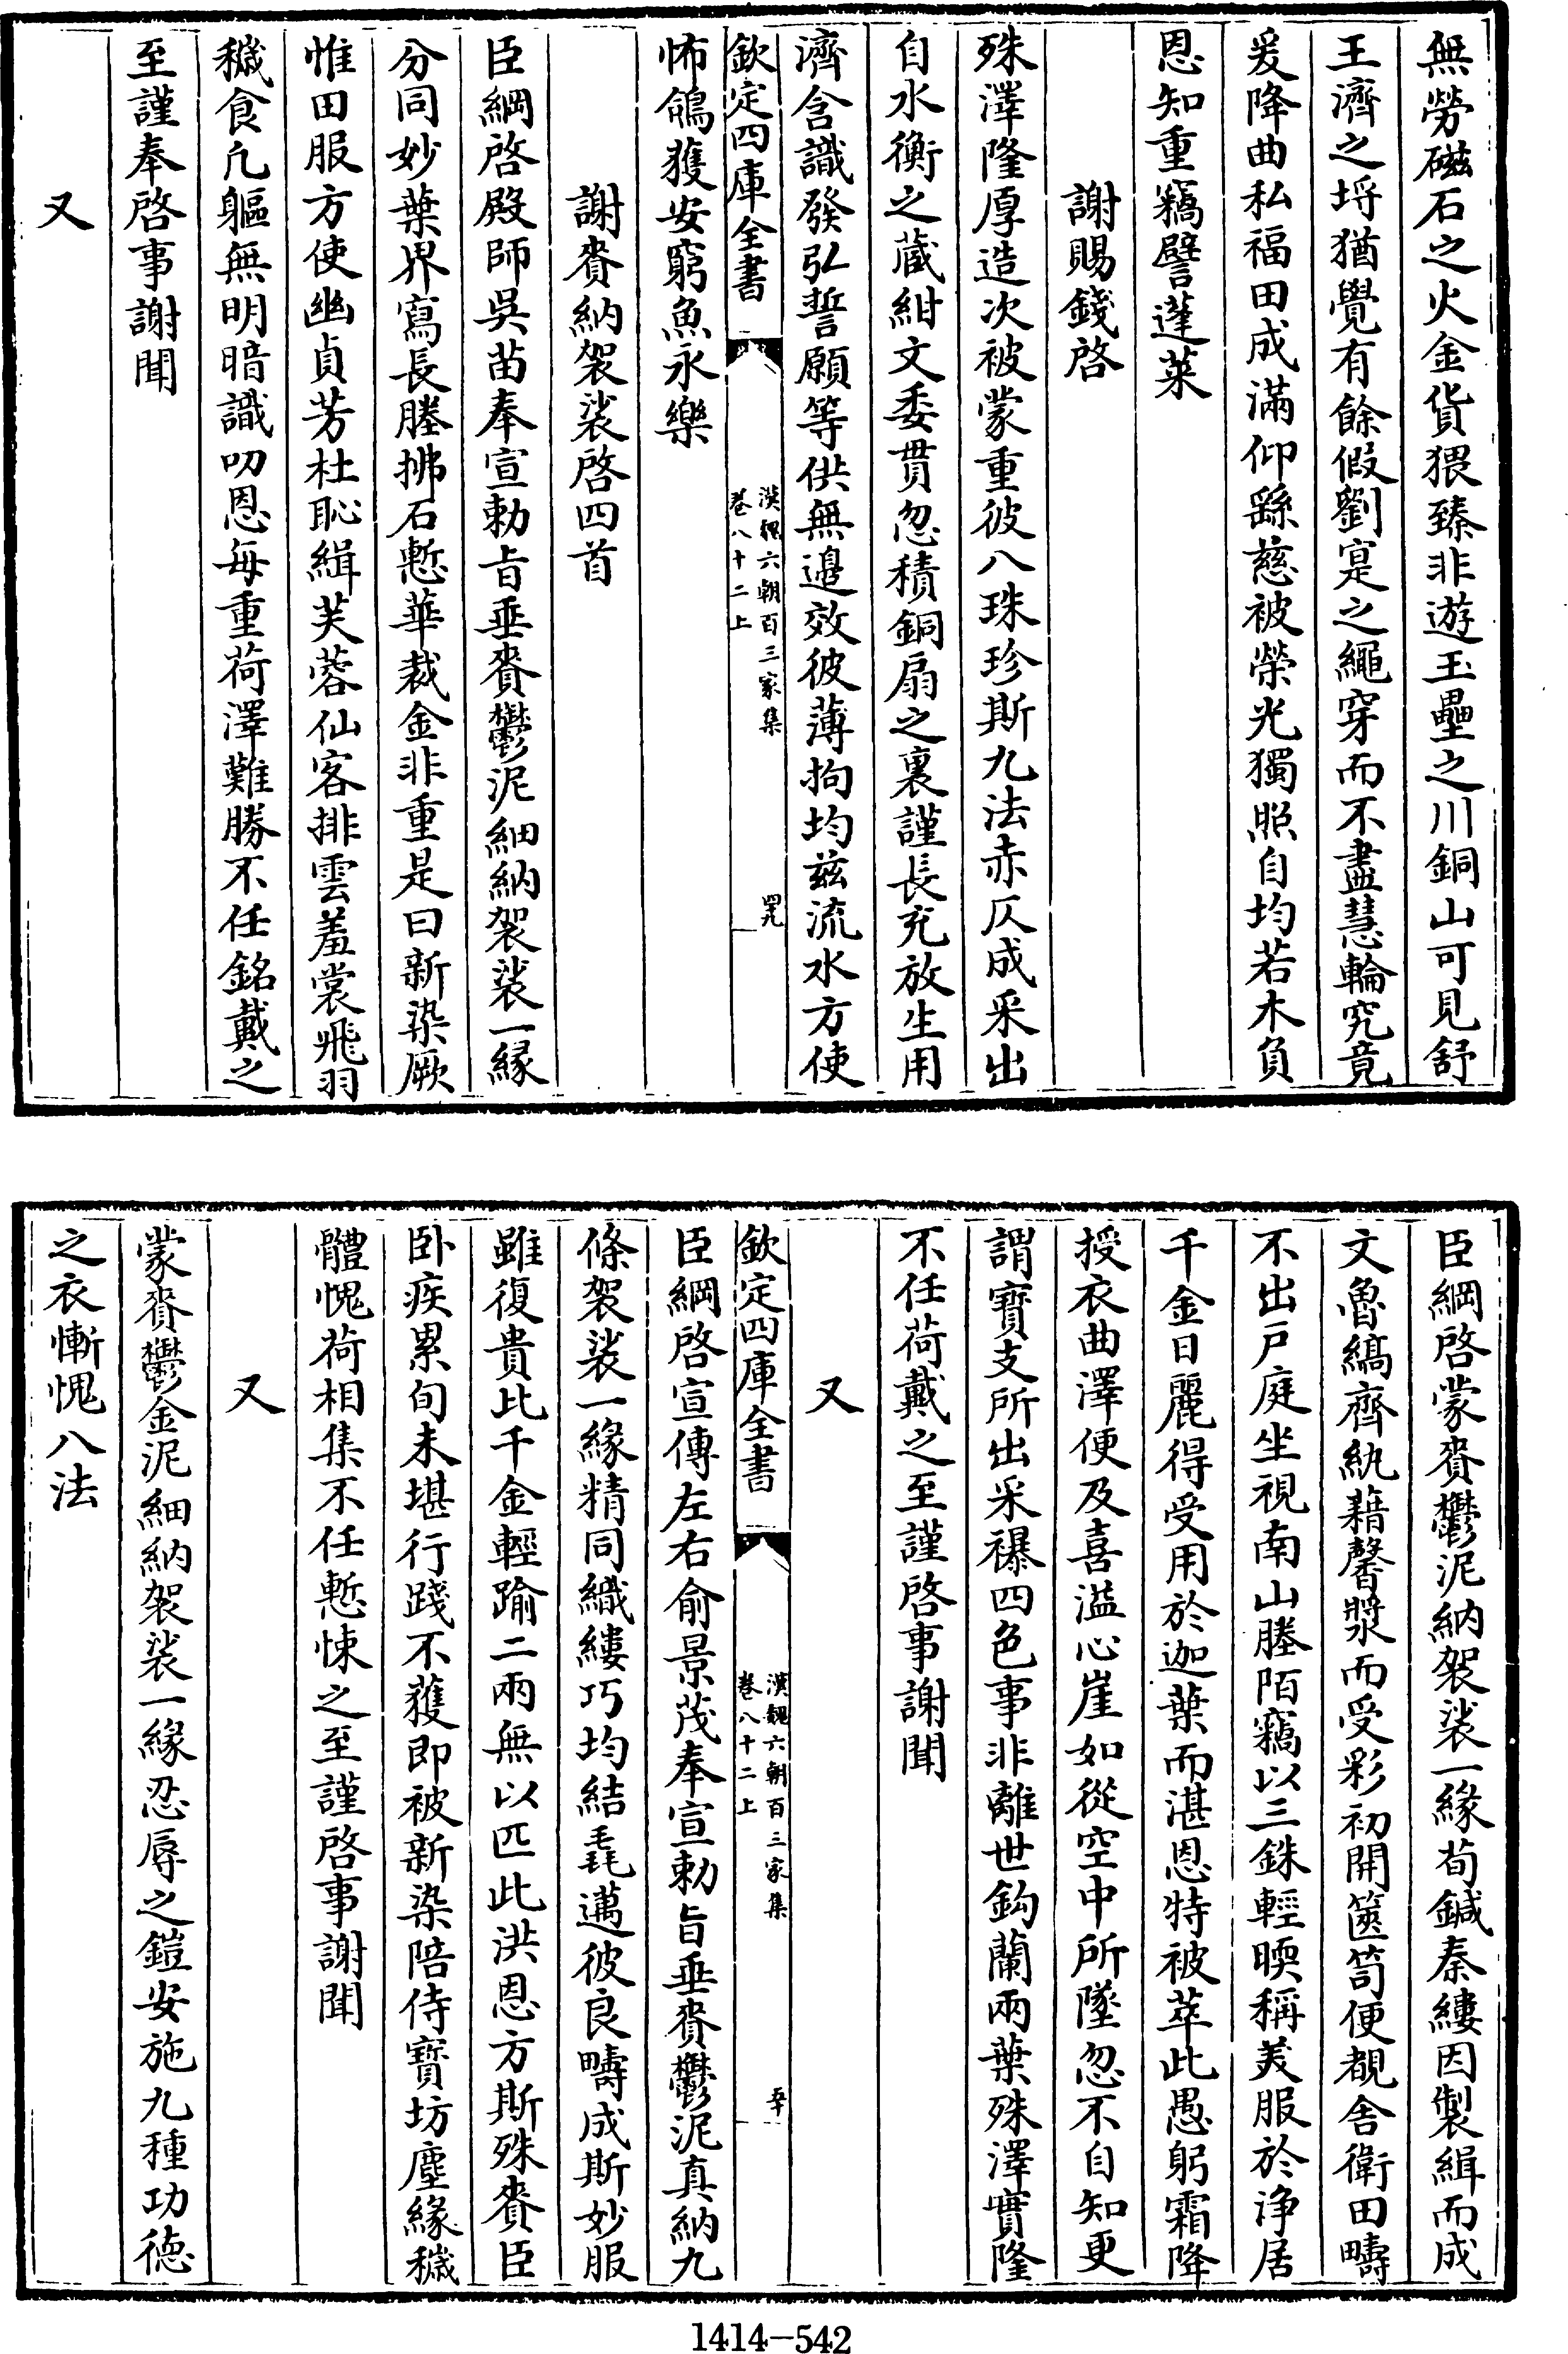 無勞磁石之火金貨猥臻非遊玉壘之川銅山可見舒
王濟之埒猶覺有餘假劉寔之繩穿而不盡慧輪究竟
爰降曲私福田成滿仰繇慈被榮光獨照自均若木負
恩知重竊譬蓬萊
謝賜錢啓
殊澤隆厚造次被蒙重彼八珠珍斯九法赤仄成采出
自水衡之藏紺文委貫忽積銅扇之裏謹長充放生用
濟含識發弘誓願等供無邊效彼薄拘均兹流水方使
欽定四庫全書
漢魏六朝百三家集
卷八十二上
四九
怖鴿獲安窮魚永樂
謝賚納袈裟啓四首
臣綱啓殿師吳苗奉宣勅旨垂賚鬱泥細納袈裟一緣
分同妙葉界寫長塍拂石慙華裁金非重是曰新染厥
惟田服方使幽貞芳杜恥緝芙蓉仙客排雲羞裳飛羽
穢食凢軀無明暗識叨恩每重荷澤難勝不任銘戴之
至謹奉啓事謝聞
又
臣綱啓蒙賚鬱泥納袈裟一緣荀鍼秦縷因製緝而成
文魯縞齊紈藉馨漿而受彩初開篋笥便覩舍衛田疇
不出戸庭坐視南山塍陌竊以三銖輕暎稱美服於浄居
千金日麗得受用於迦葉而湛恩特被萃此愚躬霜降
授衣曲澤便及喜溢心崖如從空中所墜忽不自知更
謂寶支所出采襮四色事非離世鈎蘭兩葉殊澤實隆
不任荷戴之至謹啓事謝聞
又
欽定四庫全書
漢魏六朝百三家集
卷八十二上
五十
臣綱啓宣傳左右俞景茂奉宣勅旨垂賚鬱泥真納九
條袈裟一緣精同織縷巧均結毳邁彼良疇成斯妙服
雖復貴比千金輕踰二兩無以匹此洪恩方斯殊賚臣
卧疾累旬未堪行踐不獲即被新染陪侍寳坊塵緣穢
體愧荷相集不任慙悚之至謹啓事謝聞
又
蒙賚鬱金泥細納袈裟一緣忍辱之鎧安施九種功德
之衣慚愧八法
1414-542